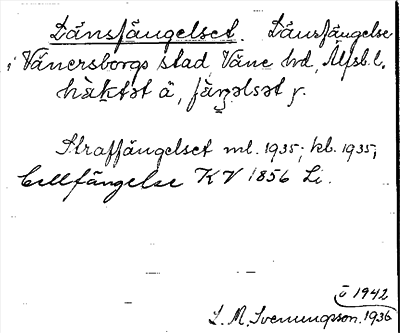 Länsfängelset. Länsfängelse
i Vänersborgs stad Väne hd, Älfsb. l.
häktət ä, fäŋəlsət ɼ.
Straffängelset ml. 1935; kb. 1935;
Cellfängelse KV 1856 Li.
1942
L. M. Svenungsson. 1936